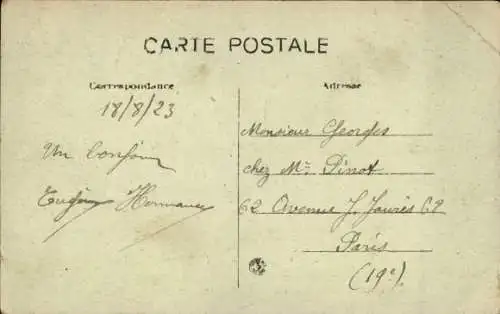 CARTE POSTALE
Correspondance
18/8/23
Un bonjour
Eugène Hermance
Adresse
Monsieur Georges
chez Mr Pinot
62 Avenue J. Jaurès 62
Paris
(19e)